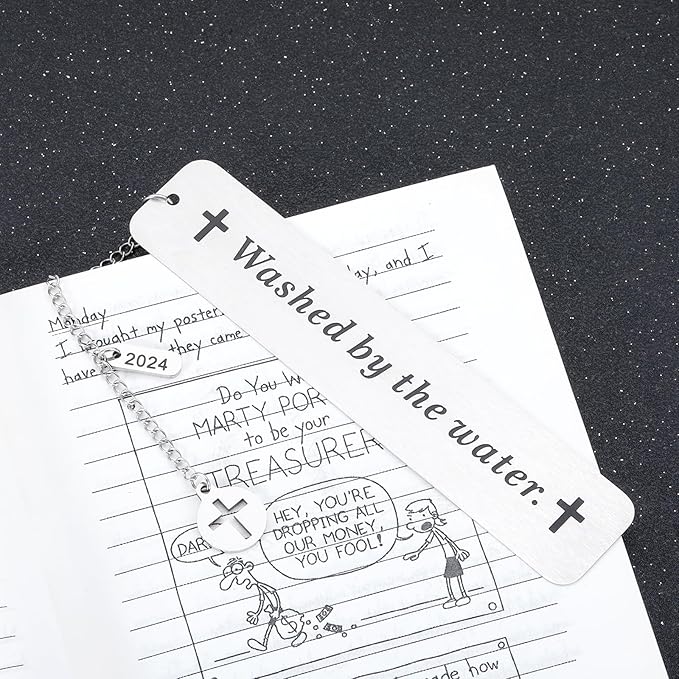 Washed by the water.
2024
Monday
I my poster and I
have they came
Do You W
MARTY POR
to be your
TREASURER
HEY, YOU'RE
DROPPING ALL
OUR MONEY,
YOU FOOL!
DAR
how